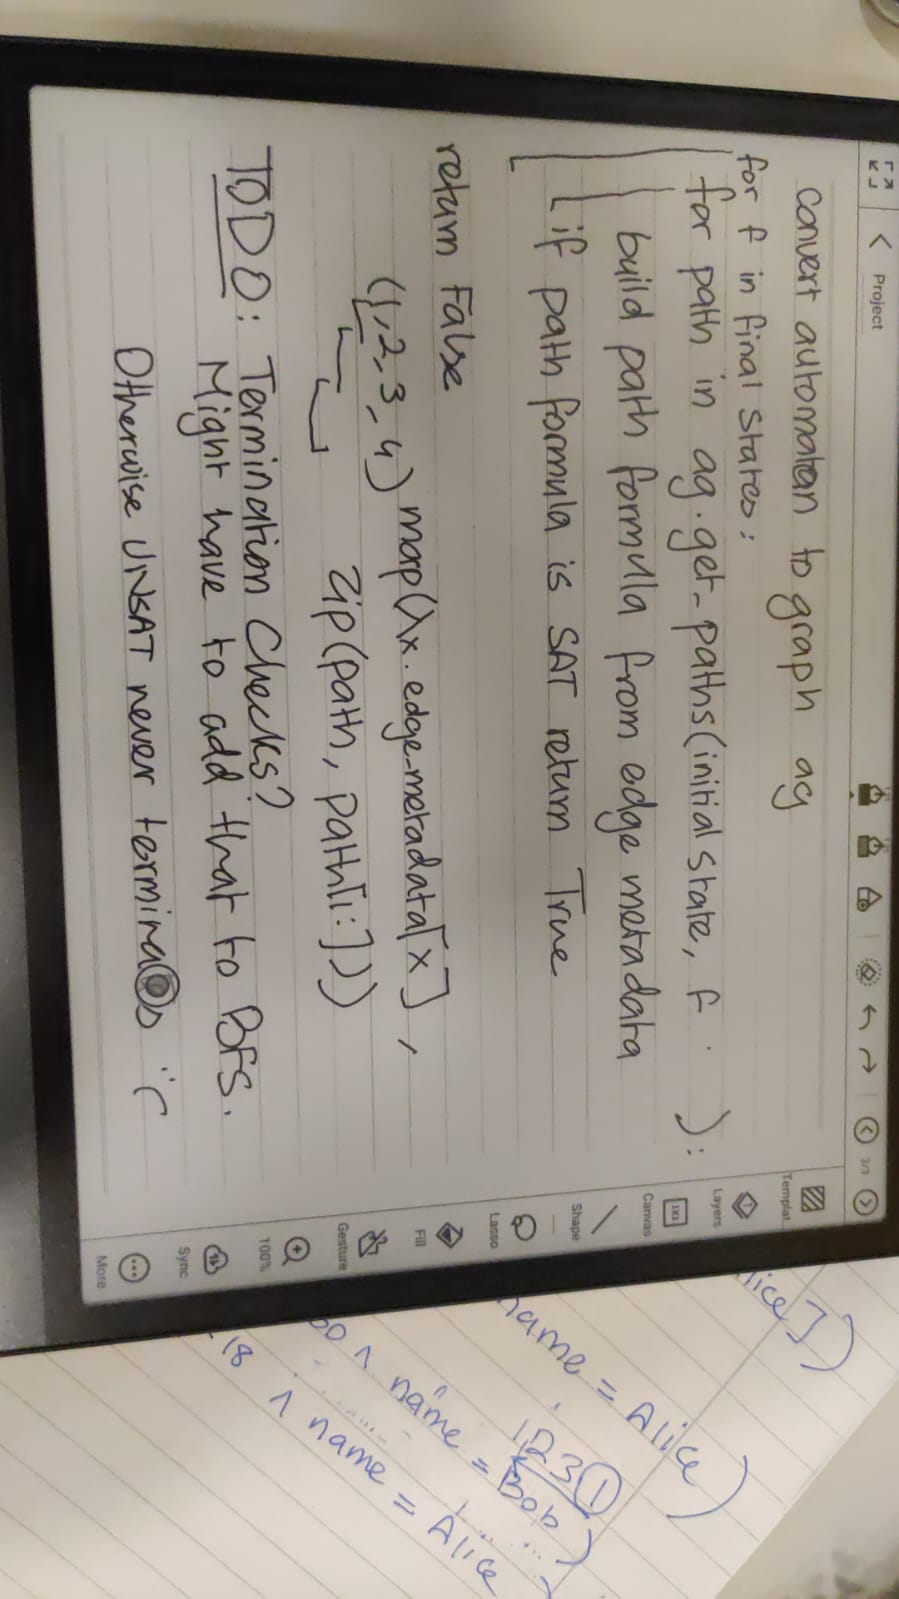 Project
3/3
convert automaton to graph ag
for f in final states:
for path in ag.get_paths(initial state, f ):
build path formula from edge metadata
if path formula is SAT return True
return False
(1,2,3,4) map(λx. edge_metadata[x],
zip(path, path[1:]))
TODO: Termination Checks?
Might have to add that to BFS.
Otherwise UNSAT never terminates :(
Templat...
Layers
1X1
Canvas
Shape
Lasso
Fill
Gesture
100%
Sync
More
lice])
name = Alice)
1231
∧ name = Bob)
18 ∧ name = Alice